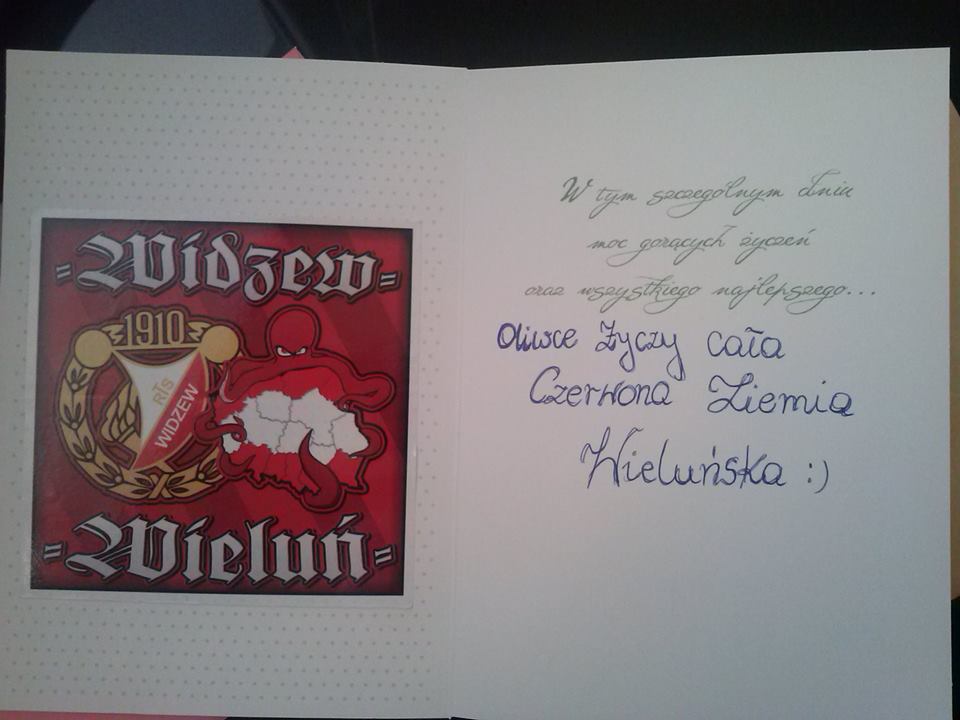 =Widzew=
1910
RTS
WIDZEW
=Wieluń=
W tym szczególnym dniu
moc gorących życzeń
oraz wszystkiego najlepszego...
Oliwce życzy cała
Czerwona Ziemia
Wieluńska :)